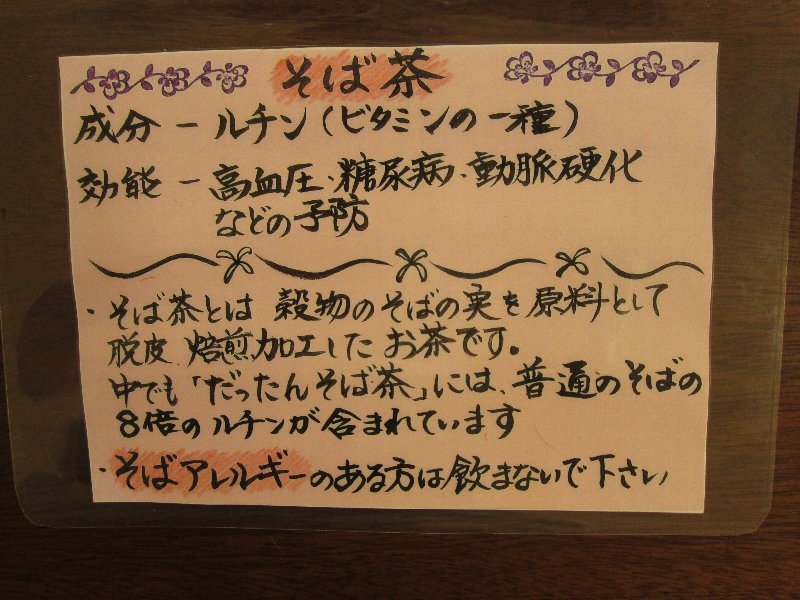 そば茶
成分 ー ルチン(ビタミンの一種)
効能 ー 高血圧、糖尿病、動脈硬化
などの予防
・そば茶とは 穀物のそばの実を原料として
脱皮 焙煎加工した お茶です。
中でも「だったんそば茶」には、普通のそばの
8倍のルチンが含まれています
・そばアレルギーのある方は飲まないで下さい